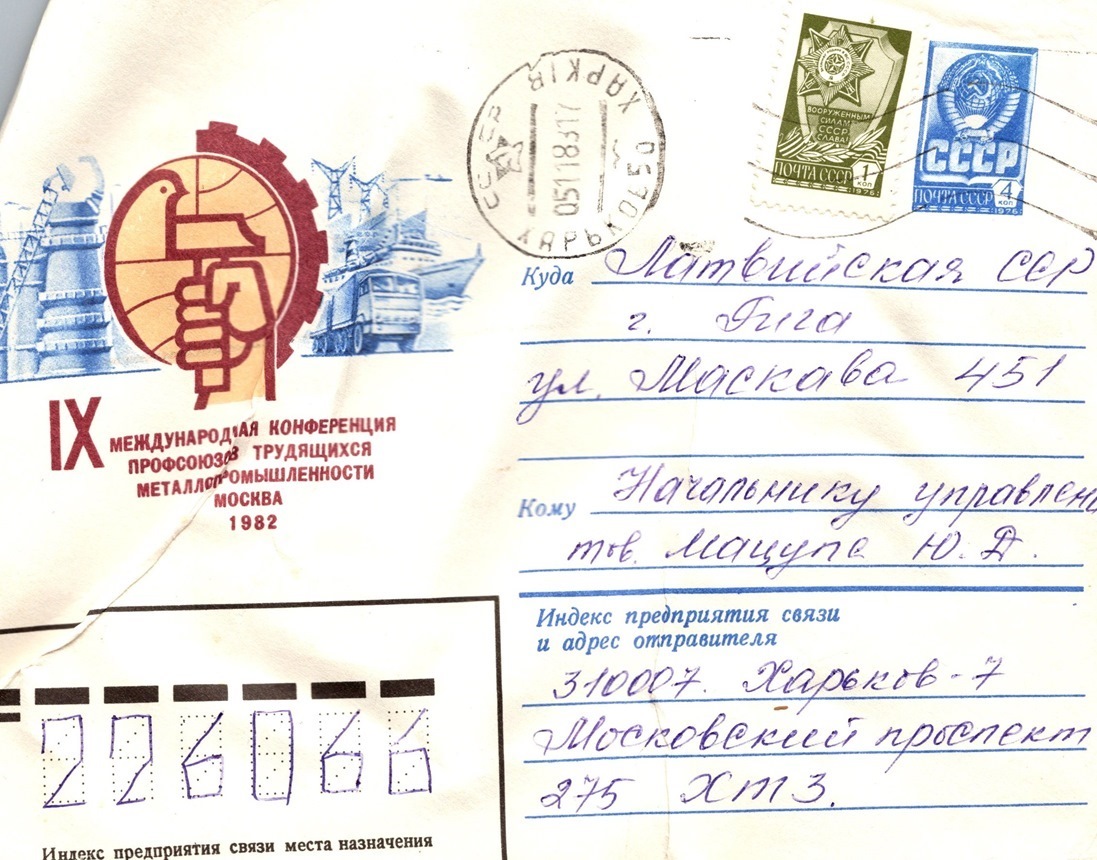 IX МЕЖДУНАРОДНАЯ КОНФЕРЕНЦИЯ
ПРОФСОЮЗОВ ТРУДЯЩИХСЯ
МЕТАЛЛОПРОМЫШЛЕННОСТИ
МОСКВА
1982
СССР ХАРКІВ
05118317
ХАРЬКОВ 50
ВООРУЖЕННЫМ
СИЛАМ
СССР
СЛАВА!
ПОЧТА СССР 1 КОП
1976
СССР
ПОЧТА СССР 4 КОП
1976
Куда Латвийская ССР
г. Рига
ул. Маскава 451
Кому Начальнику управлени
тов. Мацупа Ю. Д.
Индекс предприятия связи
и адрес отправителя
310007. Харьков-7
Московский проспект
275 ХТЗ.
226066
Индекс предприятия связи места назначения